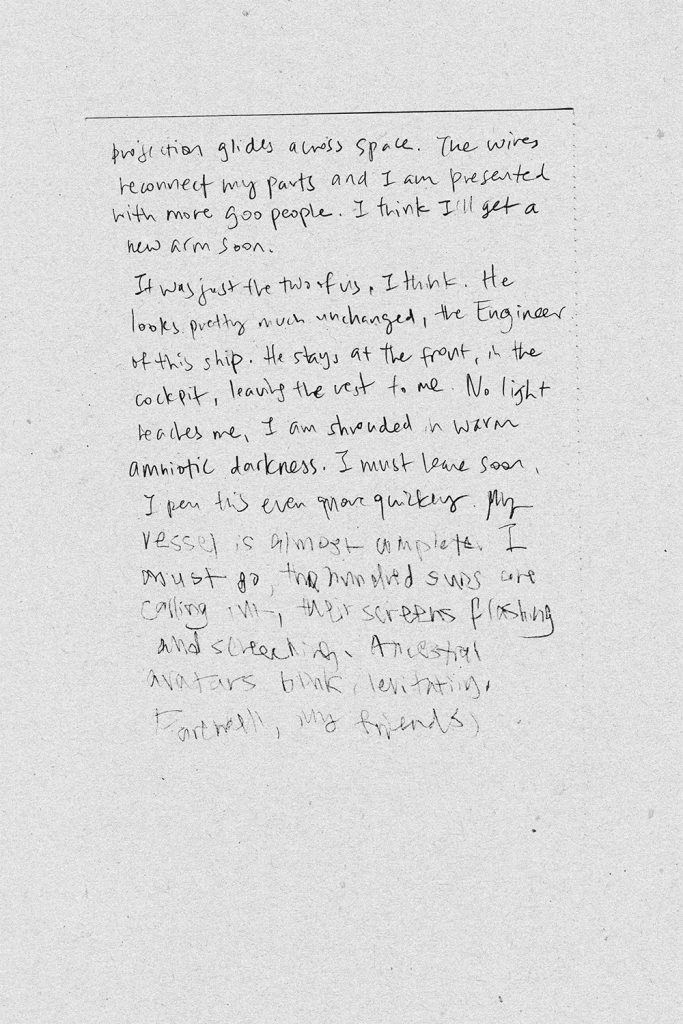 projection glides across space. The wires
reconnect my parts and I am presented
with more goo people. I think I'll get a
new arm soon.
It was just the two of us, I think. He
looks pretty much unchanged, the Engineer
of this ship. He stays at the front, in the
cockpit, leaving the rest to me. No light
reaches me, I am shrouded in warm
amniotic darkness. I must leave soon,
I pen this even more quickly. My
vessel is almost complete. I
must go, the hundred suns are
calling me, their screens flashing
and screeching. Ancestral
avatars blink, levitating.
Farewell, my friends,